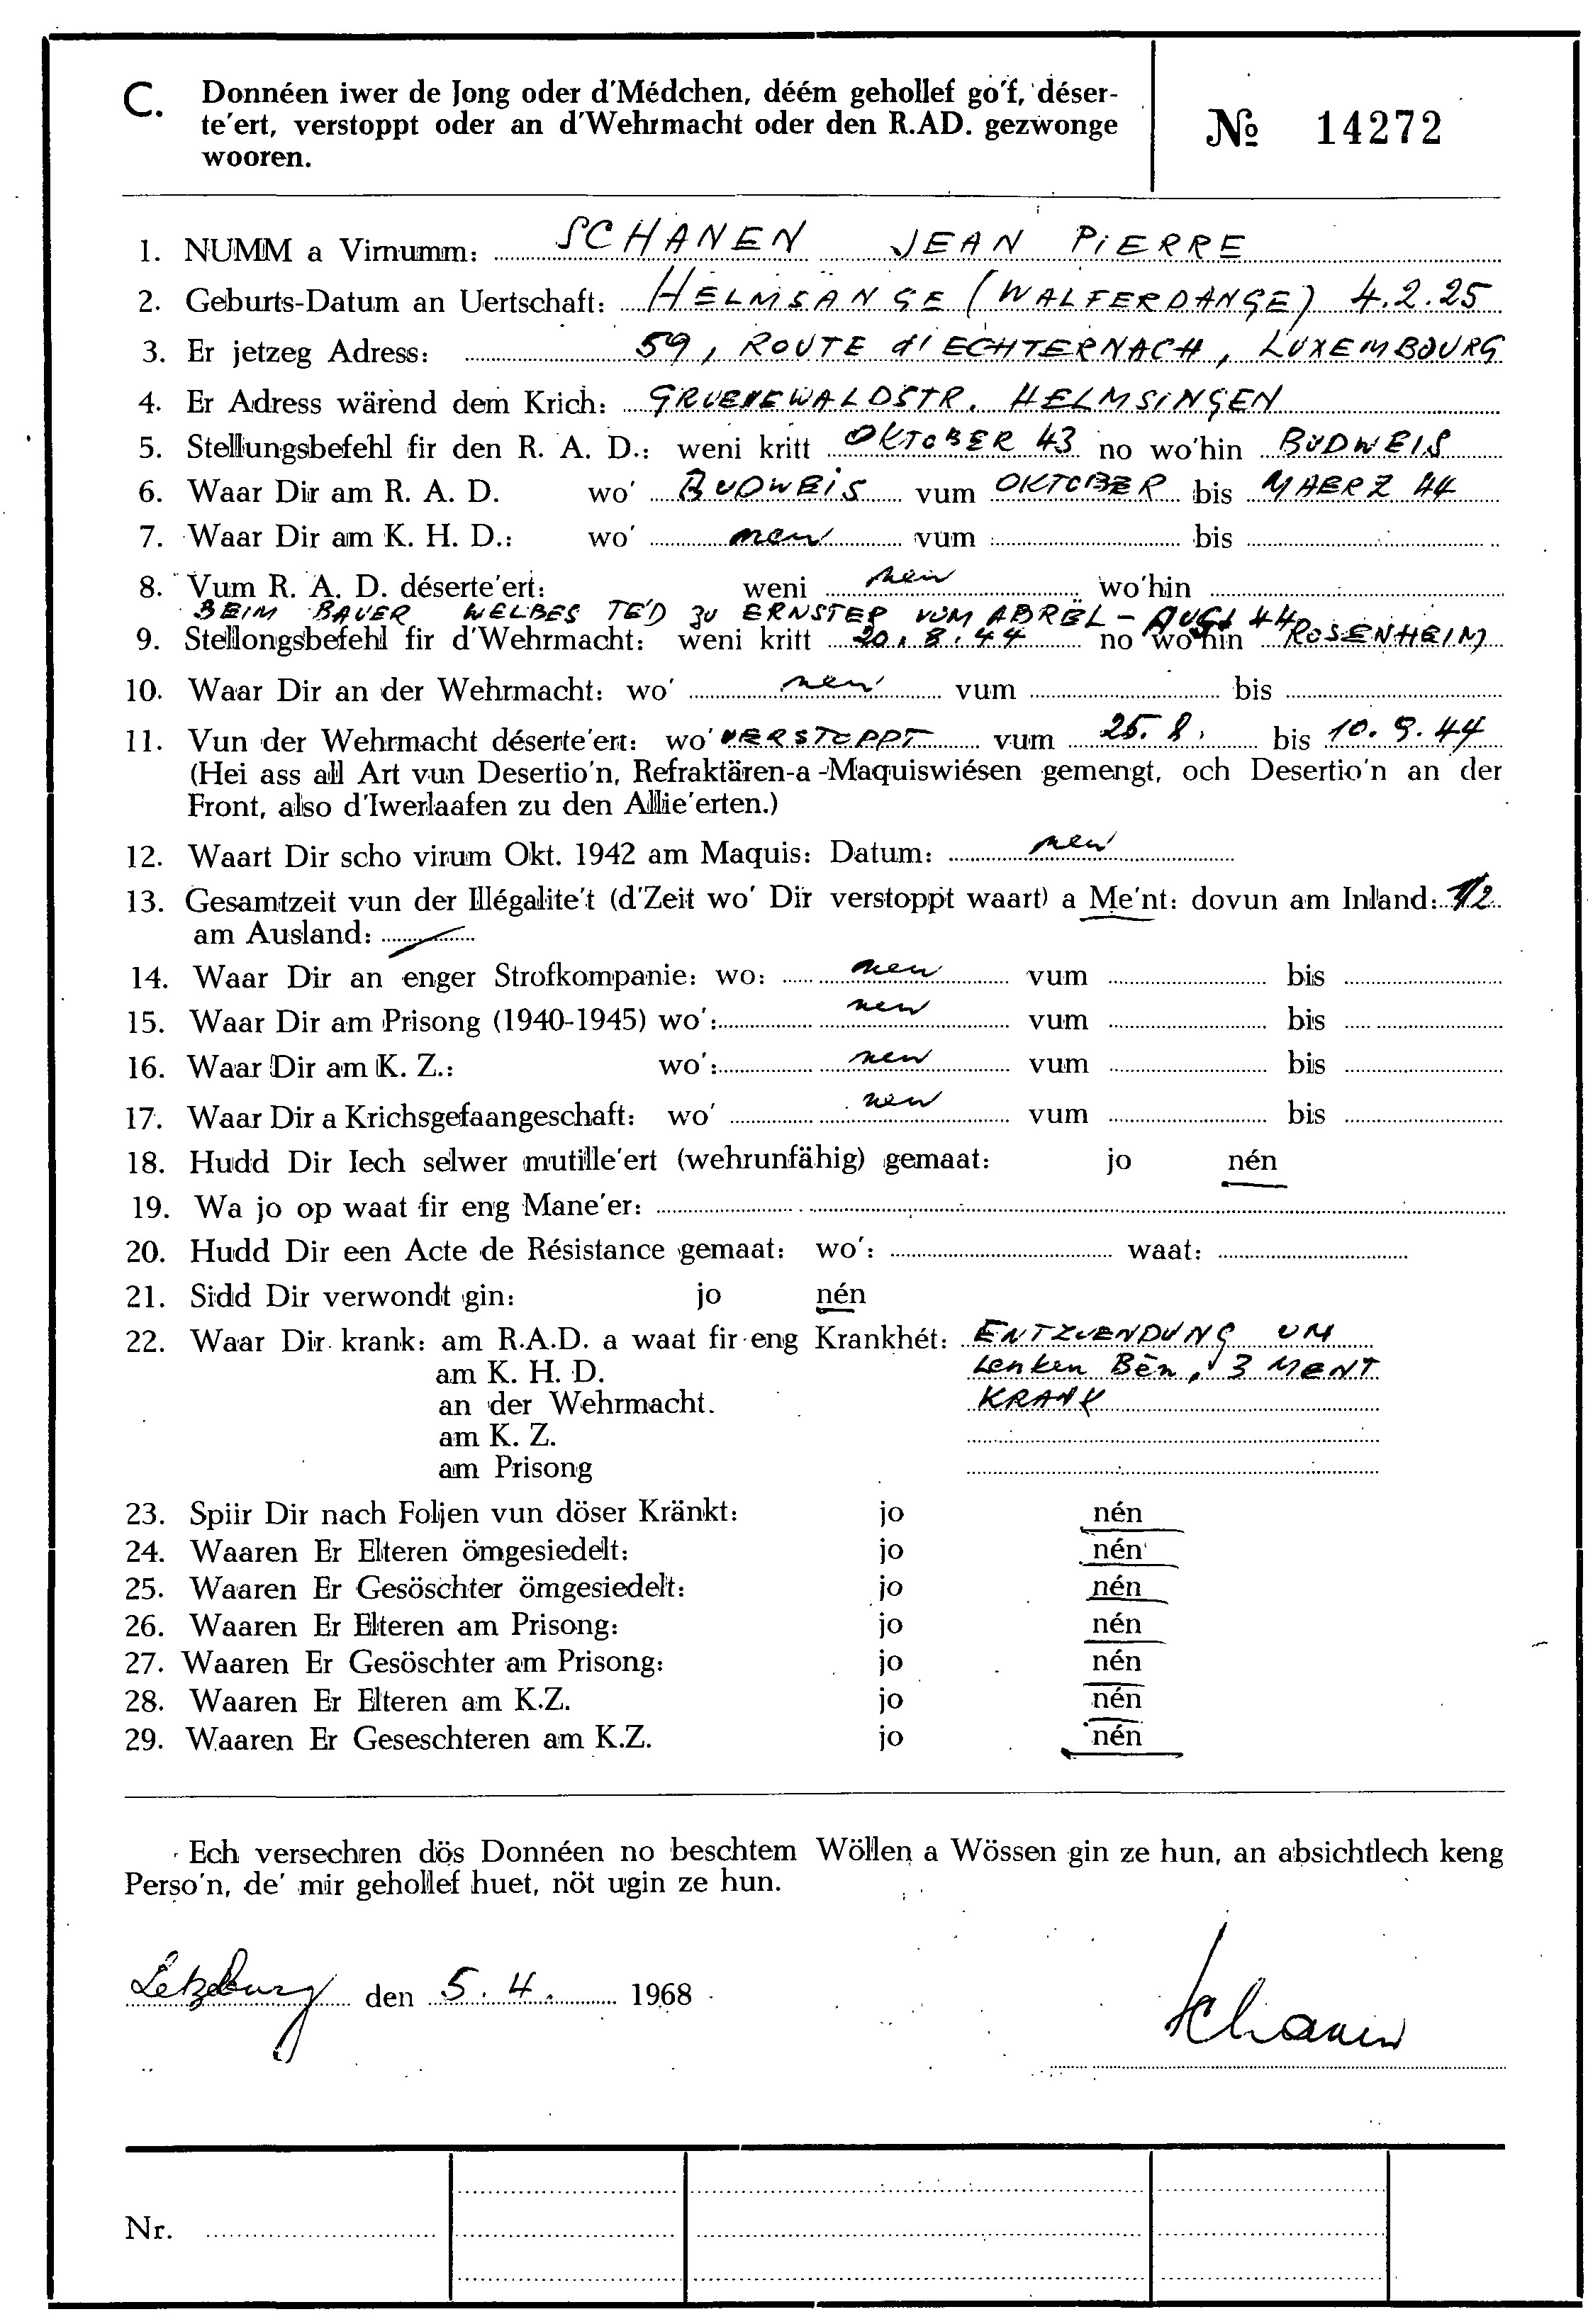 C. Donnéen iwer de Jong oder d'Médchen, déém gehollef go'f, déser-
te'ert, verstoppt oder an d'Wehrmacht oder den R.AD. gezwonge
wooren.
№ 14272
1. NUMM a Virnumm: SCHANEN JEAN PIERRE
2. Geburts-Datum an Uertschaft: HELMSANGE (WALFERDANGE) 4.2.25
3. Er jetzeg Adress: 59, ROUTE d'ECHTERNACH, LUXEMBOURG
4. Er Adress wärend dem Krich: GRUENEWALDSTR. HELMSINGEN
5. Stellungsbefehl fir den R. A. D.: weni kritt OKTOBER 43 no wo'hin BUDWEIS
6. Waar Dir am R. A. D. wo' BUDWEIS vum OKTOBER bis MAERZ 44
7. Waar Dir am K. H. D.: wo' nen vum bis
8. Vum R. A. D. déserte'ert: weni nen wo'hin
BEIM BAUER WELBES TED ZU ERNSTER VUM ABREL - AUG. 44
9. Stellongsbefehl fir d'Wehrmacht: weni kritt 20.8.44 no wo'hin ROSENHEIM
10. Waar Dir an der Wehrmacht: wo' nen vum bis
11. Vun der Wehrmacht déserte'ert: wo' VERSTOPPT vum 25.8. bis 10.9.44
(Hei ass all Art vun Desertio'n, Refraktären-a-Maquiswiésen gemengt, och Desertio'n an der
Front, also d'Iwerlaafen zu den Allie'erten.)
12. Waart Dir scho virum Okt. 1942 am Maquis: Datum: nen
13. Gesamtzeit vun der Illégalite't (d'Zeit wo' Dir verstoppt waart) a Me'nt: dovun am Inland: 1/2
am Ausland: /
14. Waar Dir an enger Strofkompanie: wo: nen vum bis
15. Waar Dir am Prisong (1940-1945) wo': nen vum bis
16. Waar Dir am K. Z.: wo': nen vum bis
17. Waar Dir a Krichsgefaangeschaft: wo' nen vum bis
18. Hudd Dir Iech selwer mutille'ert (wehrunfähig) gemaat: jo nén
19. Wa jo op waat fir eng Mane'er:
20. Hudd Dir een Acte de Résistance gemaat: wo': waat:
21. Sidd Dir verwondt gin: jo nén
22. Waar Dir krank: am R.A.D. a waat fir eng Krankhét: ENTZUENDUNG UM
am K. H. D. Lenken Bèn, 3 MENT
an der Wehrmacht. KRANK
am K. Z.
am Prisong
23. Spiir Dir nach Foljen vun döser Kränkt: jo nén
24. Waaren Er Elteren ömgesiedelt: jo nén
25. Waaren Er Gesöschter ömgesiedelt: jo nén
26. Waaren Er Elteren am Prisong: jo nén
27. Waaren Er Gesöschter am Prisong: jo nén
28. Waaren Er Elteren am K.Z. jo nén
29. Waaren Er Geseschteren am K.Z. jo nén
Ech versechren dös Donnéen no beschtem Wöllen a Wössen gin ze hun, an absichtlech keng
Perso'n, de' mir gehollef huet, nöt ugin ze hun.
Letzeburg den 5.4. 1968
Schanen
Nr.